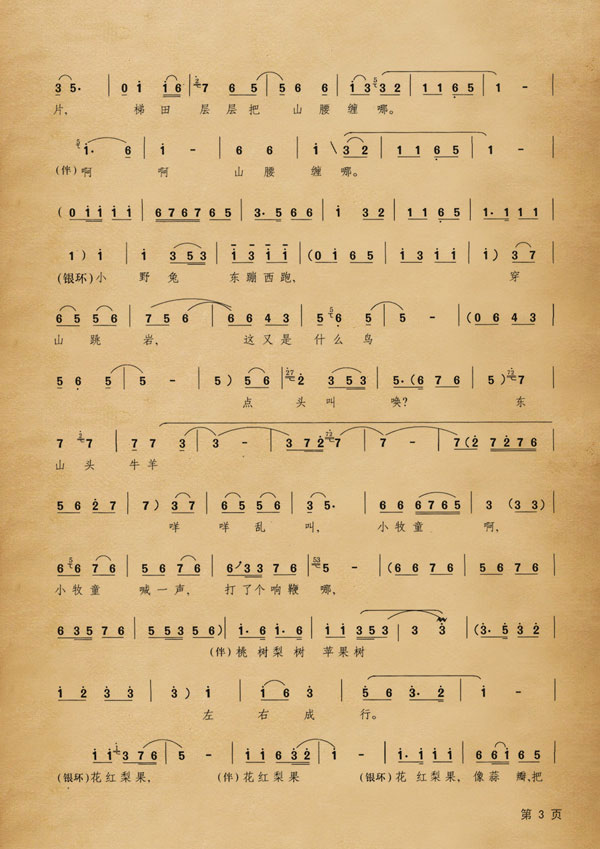 3 5· | 0 i i 6 | 7 6 5 | 5 6 6 | i 3 3 2 | 1 1 6 5 | 1 - |
片， 梯田 层层把 山腰缠哪。
i· 6 | i - | 6 6 | i \ 3 2 | 1 1 6 5 | 1 - |
(伴)啊 啊 山腰缠哪。
( 0 i i i i | 6 7 6 7 6 5 | 3· 5 6 6 | i 3 2 | 1 1 6 5 | 1· 1 1 1 |
1 ) i | i 3 5 3 | i 3 i i | ( 0 i 6 5 | i 3 i i | i ) 3 7 |
(银环)小 野兔 东蹦西跑， 穿
6 5 5 6 | 7 5 6 | 6 6 4 3 | 5 6 5 | 5 - | ( 0 6 4 3 |
山跳 岩， 这又是什么鸟
5 6 5 | 5 - | 5 ) 5 6 | 2 3 5 3 | 5· ( 6 7 6 | 5 ) 7 |
点头叫 唤？ 东
7 7 | 7 7 3 | 3 - | 3 7 2 7 | 7 - | 7 ( 2 7 2 7 6 |
山头 牛羊
5 6 2 7 | 7 ) 3 7 | 6 5 5 6 | 3 5· | 6 6 6 7 6 5 | 3 ( 3 3 ) |
咩 咩乱 叫， 小牧童 啊，
6 6 7 6 | 5 6 7 6 | 6 3 3 7 6 | 5 - | ( 6 6 7 6 | 5 6 7 6 |
小牧童 喊一声， 打了个响鞭哪，
6 3 5 7 6 | 5 5 3 5 6 | i· 6 i· 6 | i i 3 5 3 | 3 3 | ( 3· 5 3 2 |
(伴)桃树梨树 苹果树
i 2 3 3 | 3 ) i | i 6 3 | 5 6 3· 2 | 1 - |
左 右成 行。
i i 3 7 6 5 | 5 - | i i 6 3 2 1 | 1 - | i· i i i | 6 6 i 6 5 |
(银环)花红梨果， (伴)花红梨果 (银环)花红梨果，像蒜瓣，把
第 3 页